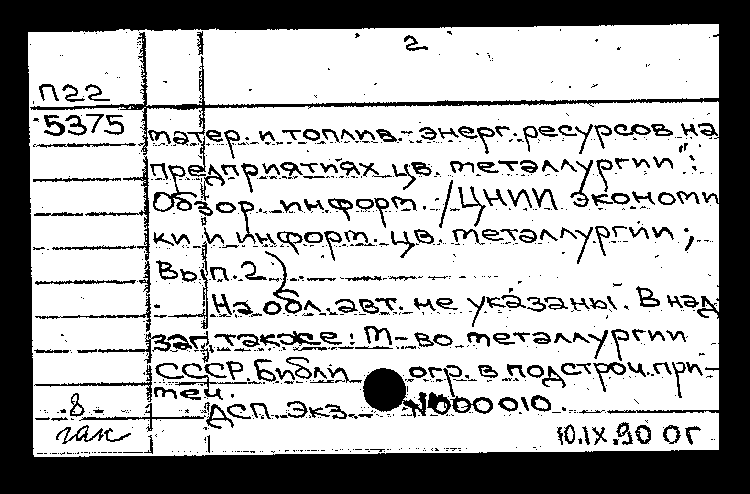 2
П22
5375
матер. и топлив.-энерг. ресурсов на
предприятиях цв. металлургии":
Обзор. информ. /ЦНИИ экономи
ки и информ. цв. металлургии;
Вып. 2).
На обл. авт. не указаны. В над
заг. также: М-во металлургии
СССР. Библи огр. в подстроч. при-
меч.
ДСП. Экз. №000010.
8
гак
10.IX.90 ог